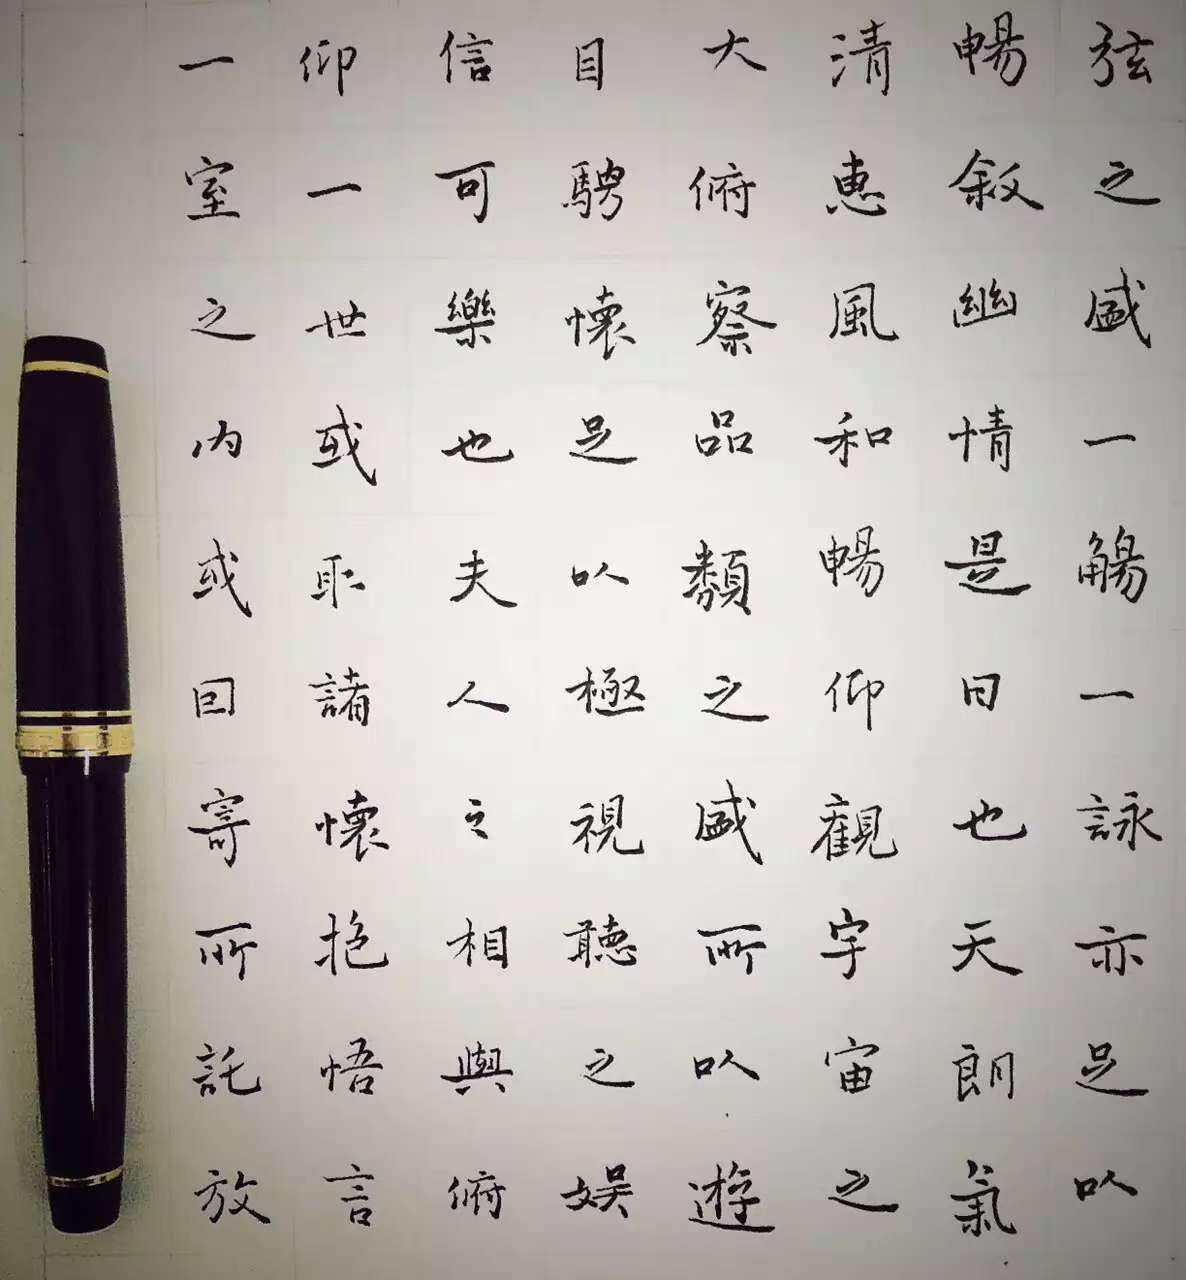 弦之盛一觴一詠亦足以
暢敘幽情是日也天朗氣
清惠風和暢仰觀宇宙之
大俯察品類之盛所以遊
目騁懷足以極視聽之娛
信可樂也夫人之相與俯
仰一世或取諸懷抱悟言
一室之內或因寄所託放